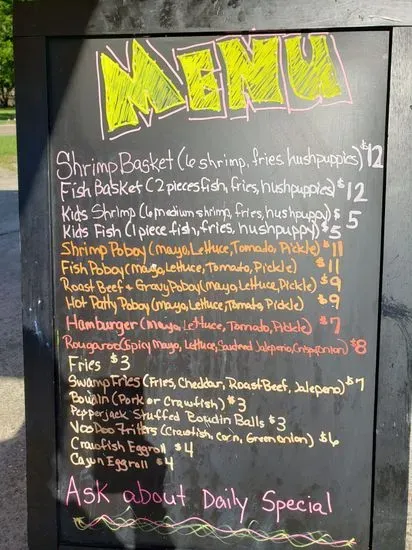 MENU
Shrimp Basket (6 shrimp, fries, hushpuppies) $12
Fish Basket (2 pieces fish, fries, hushpuppies) $12
Kids Shrimp (6 medium shrimp, fries, hushpuppy) $5
Kids Fish (1 piece fish, fries, hushpuppy) $5
Shrimp Poboy (mayo, Lettuce, Tomato, Pickle) $11
Fish Poboy (mayo, Lettuce, Tomato, Pickle) $11
Roast Beef + Gravy Poboy (mayo, Lettuce, Pickle) $9
Hot Patty Poboy (mayo, Lettuce, Tomato, Pickle) $9
Hamburger (mayo, Lettuce, Tomato, Pickle) $7
Rougarou (Spicy Mayo, Lettuce, Sauteed Jalepeno, Crispy Onion) $8
Fries $3
Swamp Fries (Fries, Cheddar, Roast Beef, Jalepeno) $7
Boudin (Pork or Crawfish) $3
Pepperjack Stuffed Boudin Balls $3
VooDoo Fritters (Crawfish, Corn, Green onion) $6
Crawfish Eggroll $4
Cajun Eggroll $4
Ask about Daily Special